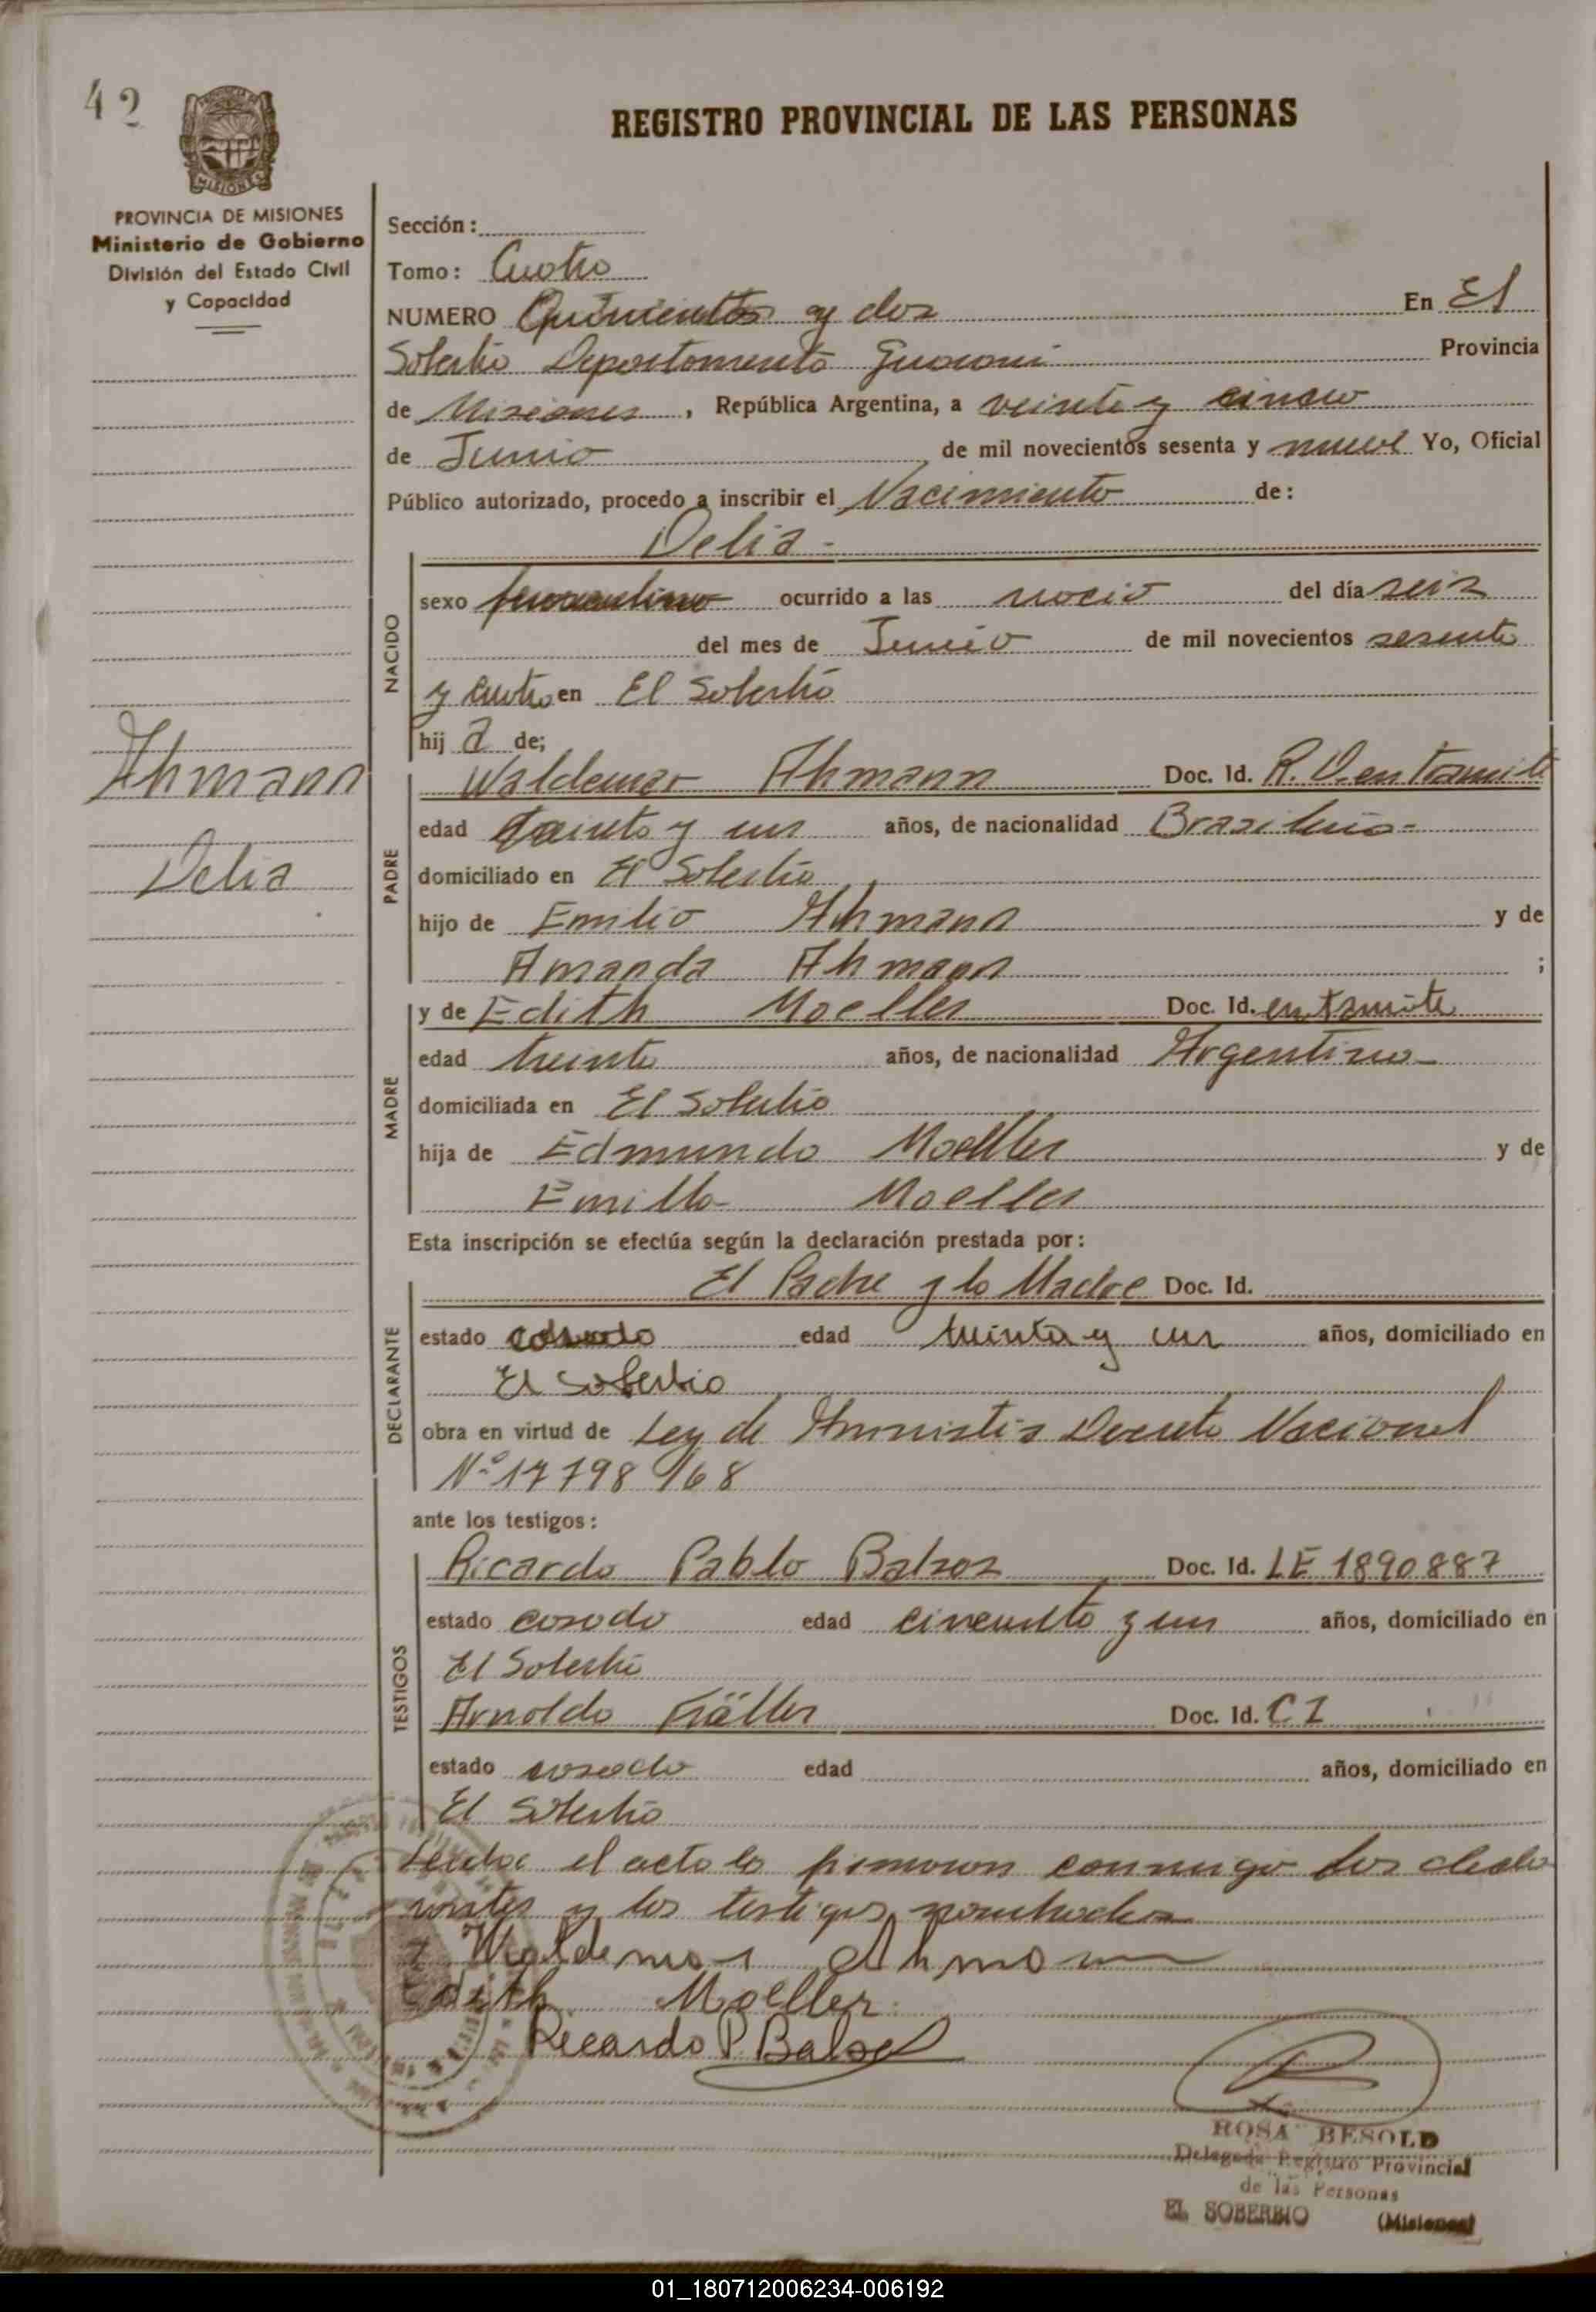 42
REGISTRO PROVINCIAL DE LAS PERSONAS
MISIONES
PROVINCIA DE MISIONES
Ministerio de Gobierno
División del Estado Civil
y Capacidad
Sección:
Tomo: Cuatro
NUMERO Quinientos y dos En El
Soberbio Departamento Guarani Provincia
de Misiones, República Argentina, a veinte y cinco
de Junio de mil novecientos sesenta y nueve Yo, Oficial
Público autorizado, procedo a inscribir el Nacimiento de:
Delia -
NACIDO
sexo ocurrido a las nació del día seis
del mes de Junio de mil novecientos sesenta
y cuatro en El Soberbio
hij a de;
Ahmann
Delia
PADRE
Waldemar Ahmann Doc. Id. R. O. en Tramite
edad treinta y un años, de nacionalidad Brasileño-
domiciliado en El Soberbio
hijo de Emilio Ahmann y de
Amanda Ahmann ;
MADRE
y de Edith Moeller Doc. Id. en tramite
edad treinta años, de nacionalidad Argentina
domiciliada en El Soberbio
hija de Edmundo Moeller y de
Emilla Moeller
Esta inscripción se efectúa según la declaración prestada por:
DECLARANTE
El Padre y la Madre Doc. Id.
estado casado edad treinta y un años, domiciliado en
El Soberbio
obra en virtud de Ley de Amnistia Decreto Nacional
Nº 17798/68
ante los testigos:
TESTIGOS
Ricardo Pablo Balsoz Doc. Id. LE 1890887
estado casado edad cincuenta y un años, domiciliado en
El Soberbio
Arnoldo Doc. Id. C I
estado casado edad años, domiciliado en
El Soberbio
Leida el acta la firmaron conmigo los decla
rantes y los testigos nombrados
Waldemar Ahmann
Edith Moeller
Ricardo P. Balsoz
ROSA BESOLD
Delegada Registro Provincial
de las Personas
EL SOBERBIO (Misiones)
01_180712006234-006192